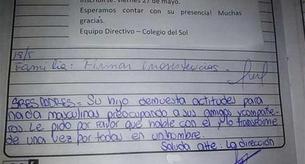 Inscribirse: viernes 27 de mayo.
Esperamos contar con su presencia! Muchas
gracias.
Equipo Directivo – Colegio del Sol
18/5
Familia: Firmar Inasistencias.
SRES PADRES: Su hijo demuestra actitudes para
nada masculinas preocupando a sus amigos y compañe-
ros. Le pido por favor que hable con él y lo transforme
de una vez por todas en un hombre.
Saluda atte: La dirección